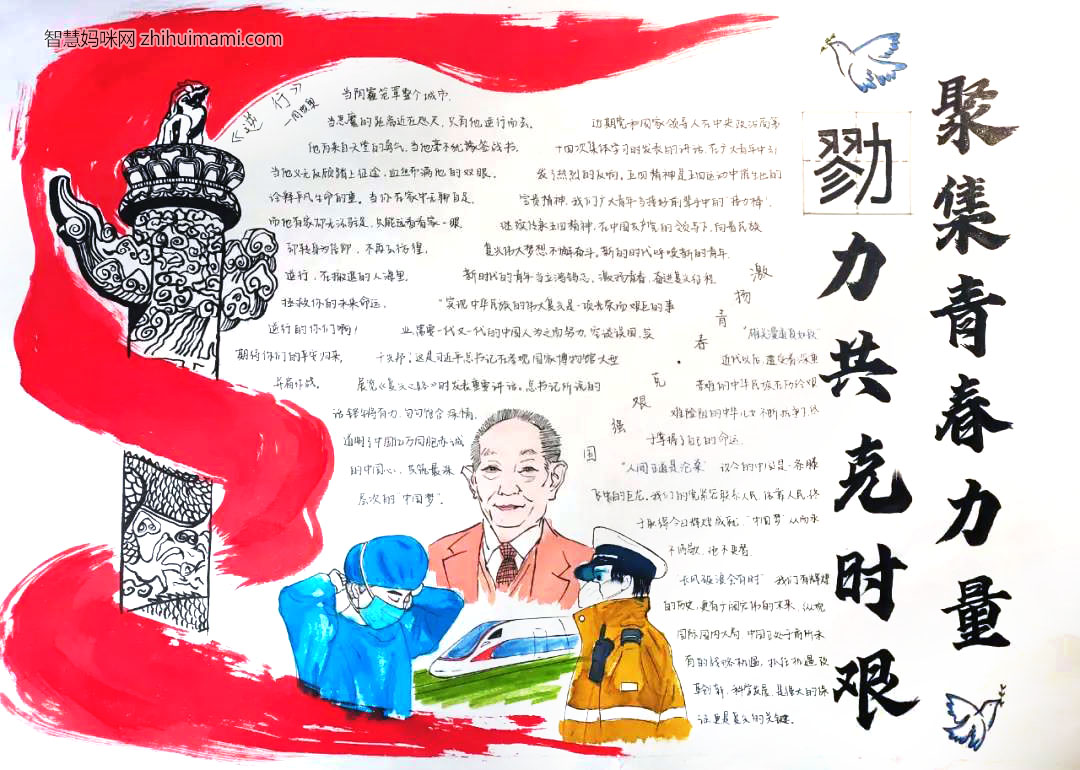 智慧妈咪网 zhihuimami.com
聚集青春力量
勠力共克时艰
《逆行》
当阴霾笼罩整个城市.
当恶魔的距离近在咫尺,只有他逆行而去。
当他义无反顾踏上征途,血丝布满他的双眼.
诠释平凡生命的重。当你在家中无聊自是.
而他有家却无法靠近.只能远看看家一眼
却转身为信仰,不再去彷徨,
逆行,在撤退的人海里.
拯救你的未来命运.
逆行的你们啊!
期待你们的平安归来,
并肩作战。
近期党和国家领导人在中央政治局第
十四次集体学习时发表的讲话,在广大青年中引
发了热烈的反响。五四精神是五四运动中产生的
宝贵精神.我们广大青年当接好前辈手中的"接力棒".
继续传承五四精神,在中国共产党的领导下,向着民族
复兴伟大梦想不懈奋斗。新的时代呼唤新的青年.
新时代的青年当立鸿鹄志,激扬青春,奋进复兴征程
"实现中华民族的伟大复兴是一项光荣而艰巨的事
业,需要一代又一代的中国人为之而努力,空谈误国,实
干兴邦",这是习近平总书记在参观国家博物馆大型
展览《复兴之路》时发表重要讲话。总书记所说的
话铿锵有力,句句饱含深情,
道明了中国亿万同胞赤诚
的中国心,灰筑最深
层次的"中国梦".
激扬青春·
克艰强国
"雄关漫道真如铁"
近代以后,遭受着深重
苦难的中华民族在历经艰
难险阻的中华儿女不断抗争下,终
于掌握了自己的命运.
"人间正道是沧桑" 议今的中国是一条腾
飞的巨龙.我们的党紧密联系人民,依靠人民,终
于取得今日辉煌成就,"中国梦"从而永
不停歇,也不复暮.
"长风破浪会有时" 我们有辉煌
的历史,更有广阔无限的未来,纵观
国际国内大局,中国正处于前所未
有的战略机遇,抓住机遇,改
革创新,科学发展,是强大的保
证更是复兴的关键。